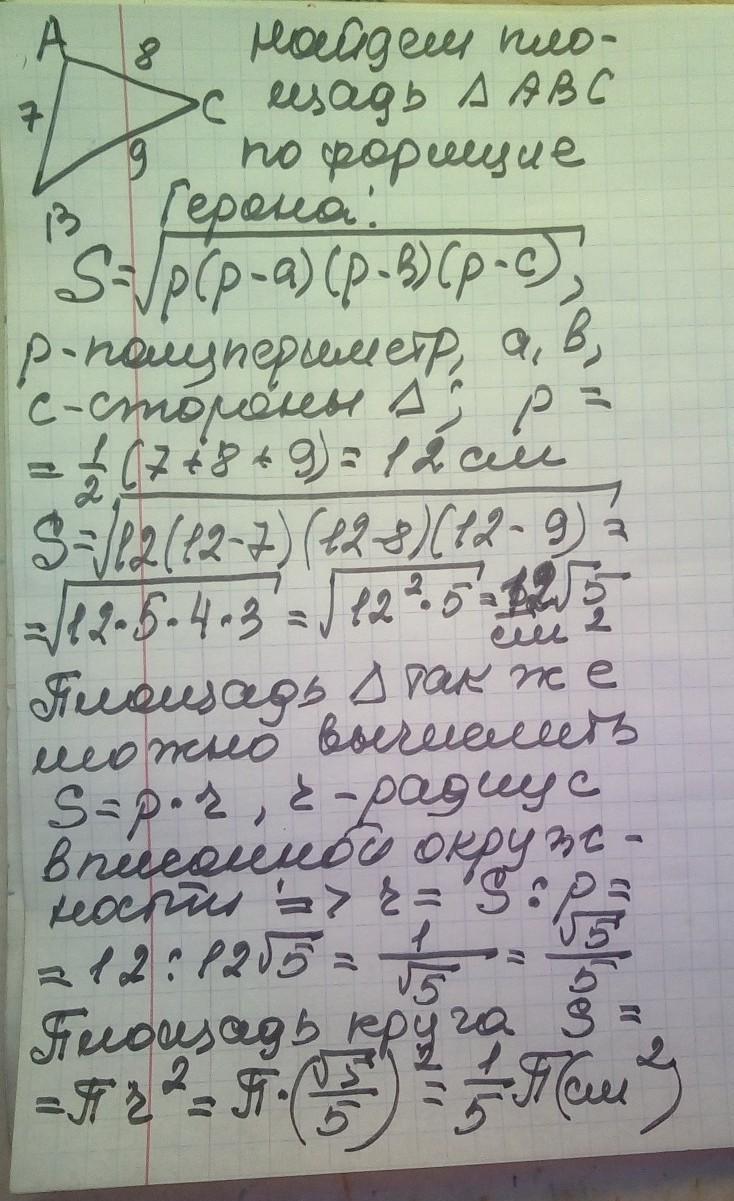 A 8 найдем пло-
7 C щадь Δ ABC
9 по формуле
B Герона:
S=√p(p-a)(p-в)(p-c),
p-полупериметр, a, в,
c-стороны Δ; p =
= 1/2 (7+8+9)= 12 см
S=√12(12-7)(12-8)(12-9) =
=√12·5·4·3 = √12²·5 = 12√5
см²
Площадь Δ так же
можно вычислить
S=p·r, r-радиус
вписанной окруж-
ности => r = S:p=
= 12:12√5 = 1/√5 = √5/5
Площадь круга S=
=πr²= π·(√5/5)²= 1/5 π(см²)